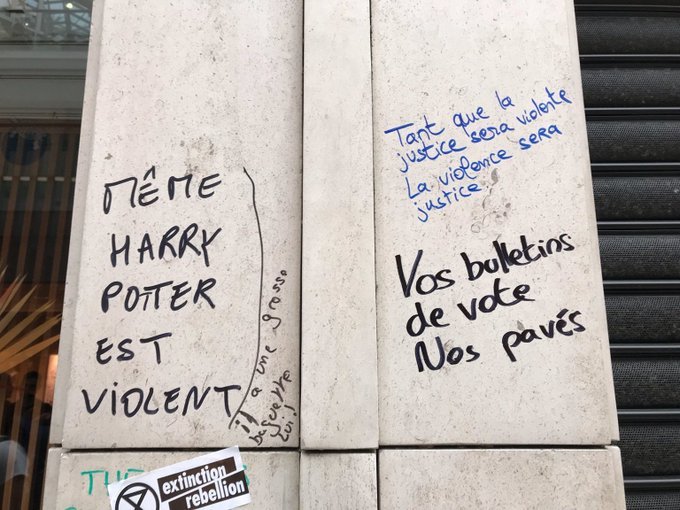 MÊME
HARRY
POTTER
EST
VIOLENT
il a une grosse
baguette
lui!
Tant que la
justice sera violente
La violence sera
justice
Vos bulletins
de vote
Nos pavés
THE
extinction
rebellion